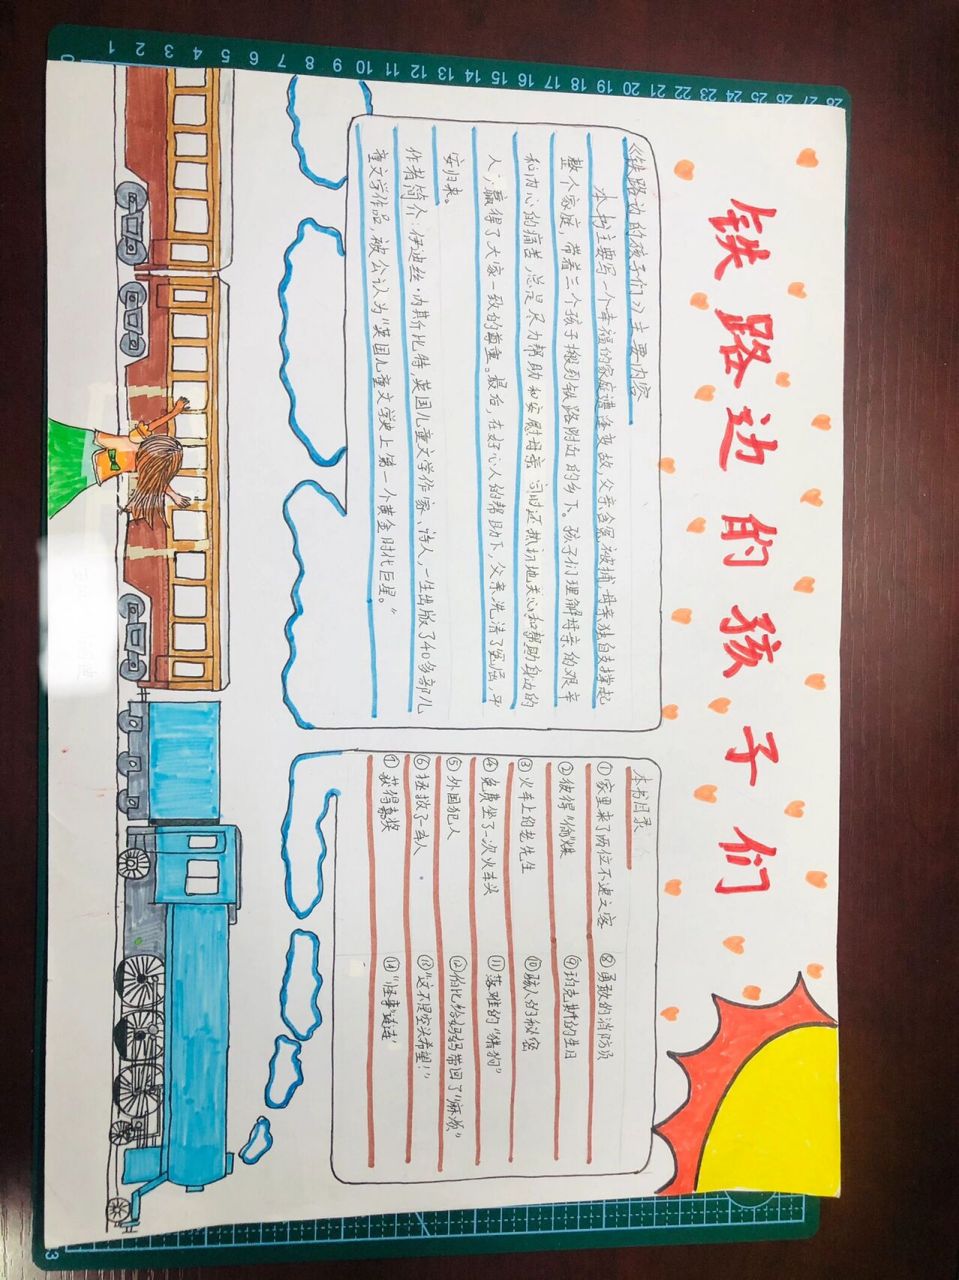 铁路边的孩子们
《铁路边的孩子们》主要内容
本书主要写一个幸福的家庭遭逢变故,父亲含冤被捕,母亲独自支撑起
整个家庭,带着三个孩子搬到铁路附近的乡下。孩子们理解母亲的艰辛
和内心的痛苦,总是尽力帮助和安慰母亲,同时还热切地关心和帮助身边的
人,赢得了大家一致的尊重。最后,在好心人的帮助下,父亲洗清了冤屈,平
安归来。
作者简介:伊迪丝·内斯比特,英国儿童文学作家、诗人,一生出版了40多部儿
童文学作品,被公认为“英国儿童文学史上第一个黄金时代巨星。”
本书目录
①家里来了两位不速之客
②彼得“偷”煤
③火车上的老先生
④免费坐了一次火车头
⑤外国犯人
⑥拯救了一车人
⑦获得嘉奖
⑧勇敢的消防员
⑨珀克斯的生日
⑩骇人的秘密
⑪落难的“猎狗”
⑫伯比给妈妈带回了“麻烦”
⑬“这不是空头希望!”
⑭“怪事”连连
0 1 2 3 4 5 6 7 8 9 10 11 12 13 14 15 16 17 18 19 20 21 22 23 24 25 26 27 28